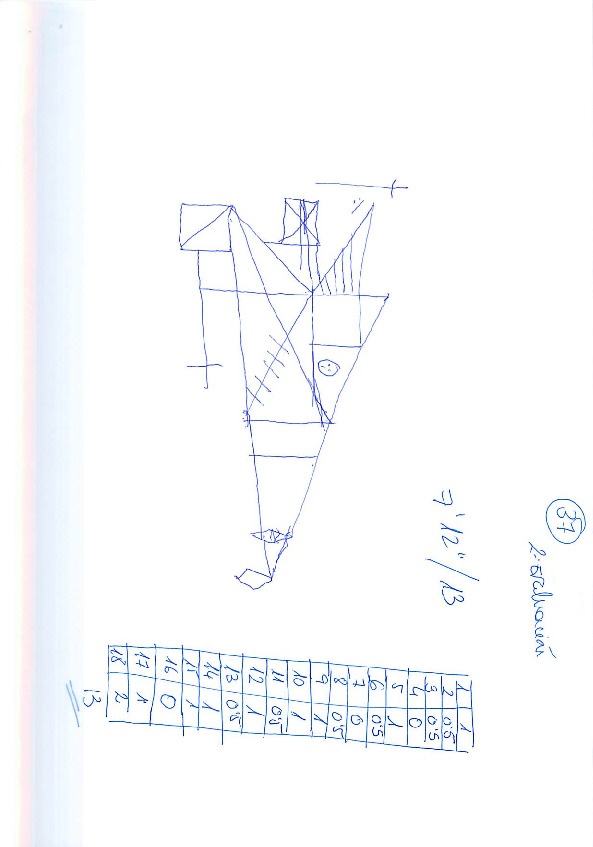 37
2ª Evaluación
7' 12" / 13
1 1
2 0'5
3 0'5
4 0
5 1
6 0'5
7 0
8 0'5
9 1
10 1
11 0'5
12 1
13 0'5
14 1
15 1
16 0
17 1
18 2
13